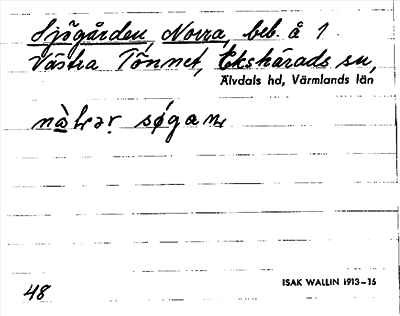 Sjögården, Norra, beb. å 1
Västra Tönnet, Ekshärads sn,
Älvdals hd, Värmlands län
søgaɳ
ISAK WALLIN 1913-15
48